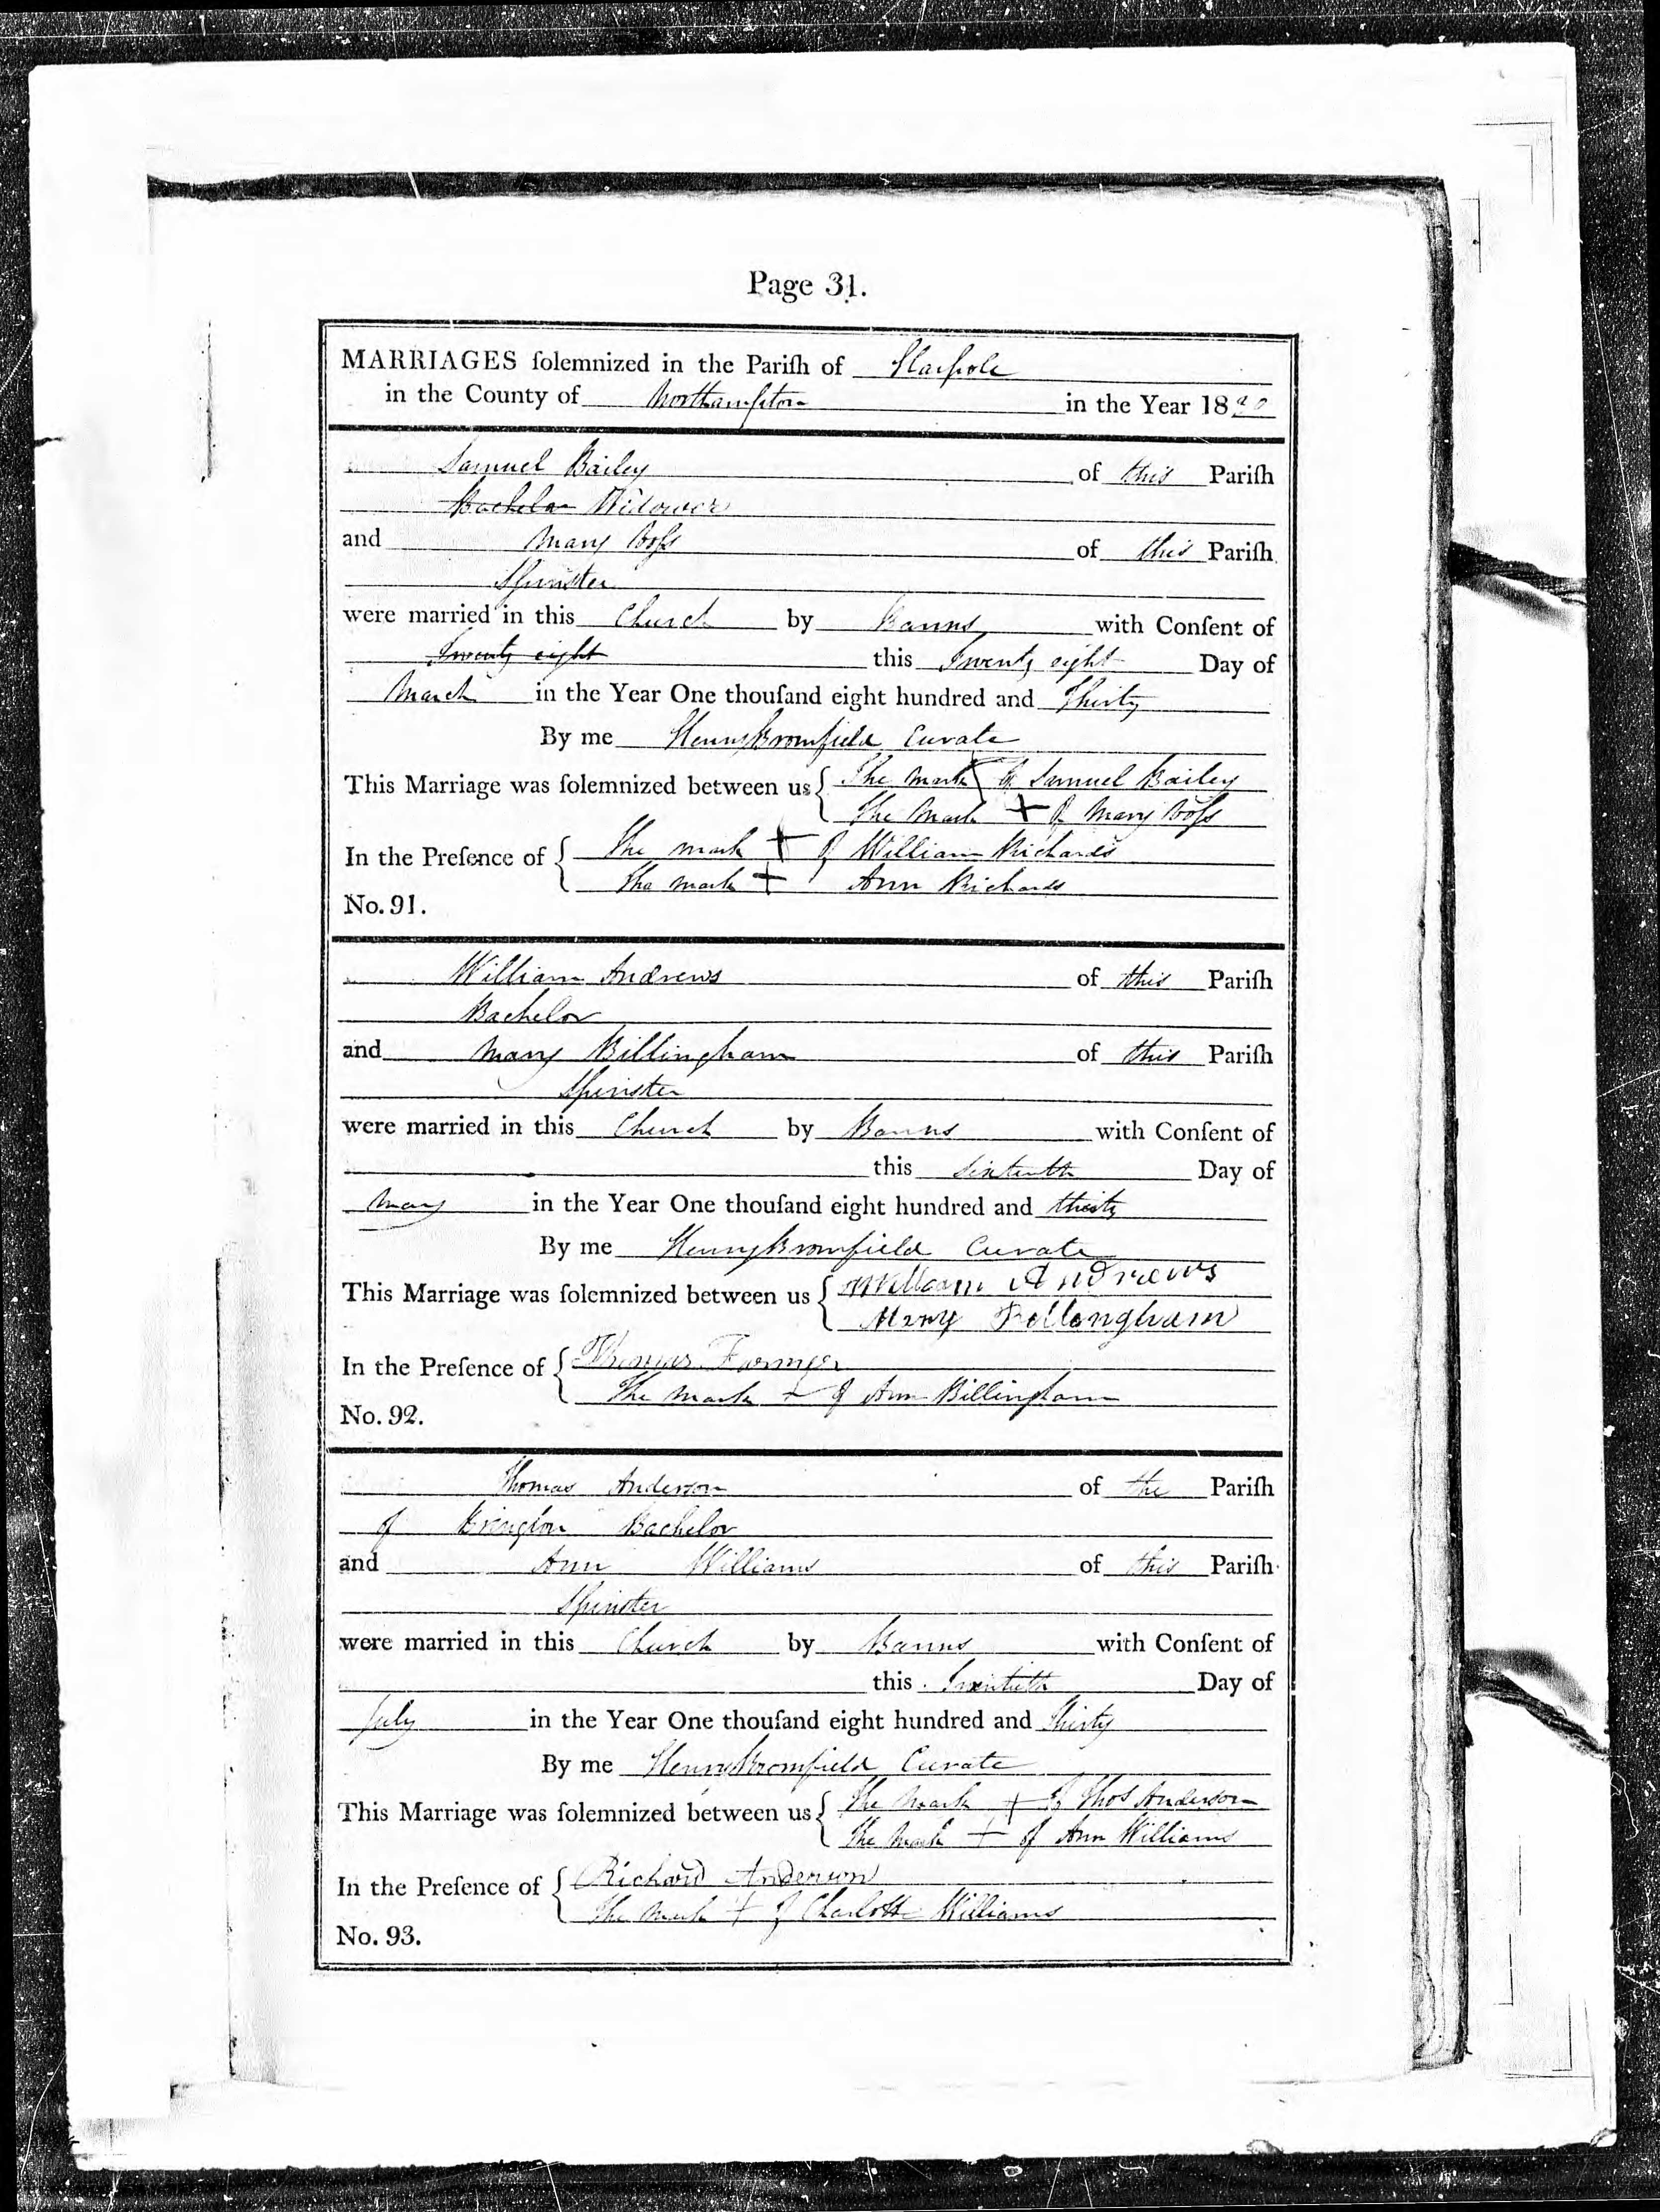 Page 31.
MARRIAGES ſolemnized in the Pariſh of Harpole
in the County of Northampton in the Year 1830
Samuel Bailey of this Pariſh
Bachelor Widower
and Mary of this Pariſh
Spinster
were married in this Church by Banns with Conſent of
Twenty eight this Twenty eight Day of
March in the Year One thouſand eight hundred and Thirty
By me Henry Bromfield Curate
This Marriage was ſolemnized between us The mark of Samuel Bailey
The Mark + of Mary
In the Preſence of The mark + of William Richards
The mark + Ann Richards
No. 91.
William Andrews of this Pariſh
Bachelor
and Mary Billingham of this Pariſh
Spinster
were married in this Church by Banns with Conſent of
this Sixteenth Day of
May in the Year One thouſand eight hundred and thirty
By me Henry Bromfield Curate
This Marriage was ſolemnized between us William Andrews
Mary Billingham
In the Preſence of Thomas
The mark + of Ann Billingham
No. 92.
Thomas Anderson of the Pariſh
of Brington Bachelor
and Ann Williams of this Pariſh
Spinster
were married in this Church by Banns with Conſent of
this Twentieth Day of
July in the Year One thouſand eight hundred and Thirty
By me Henry Bromfield Curate
This Marriage was ſolemnized between us The Mark + of Thos Anderson
The Mark + of Ann Williams
In the Preſence of Richard Anderson
The Mark + of Charlotte Williams
No. 93.